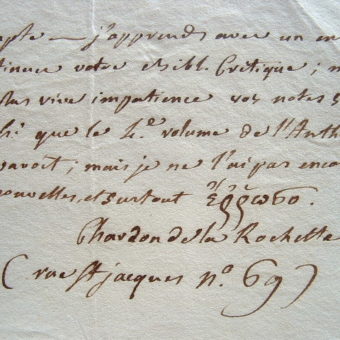 mpte — j'apprends avec un en
tinuer votre Bibl. Critique ; m
plus vive impatience vos notes s
lié que le 2.e volume de l'Anth
avoit ; mais je ne l'ai pas enco
nouvelles, et surtout ἔῤῥωσο.
Chardon de la Rochette
(rue St jacques n.o 69)